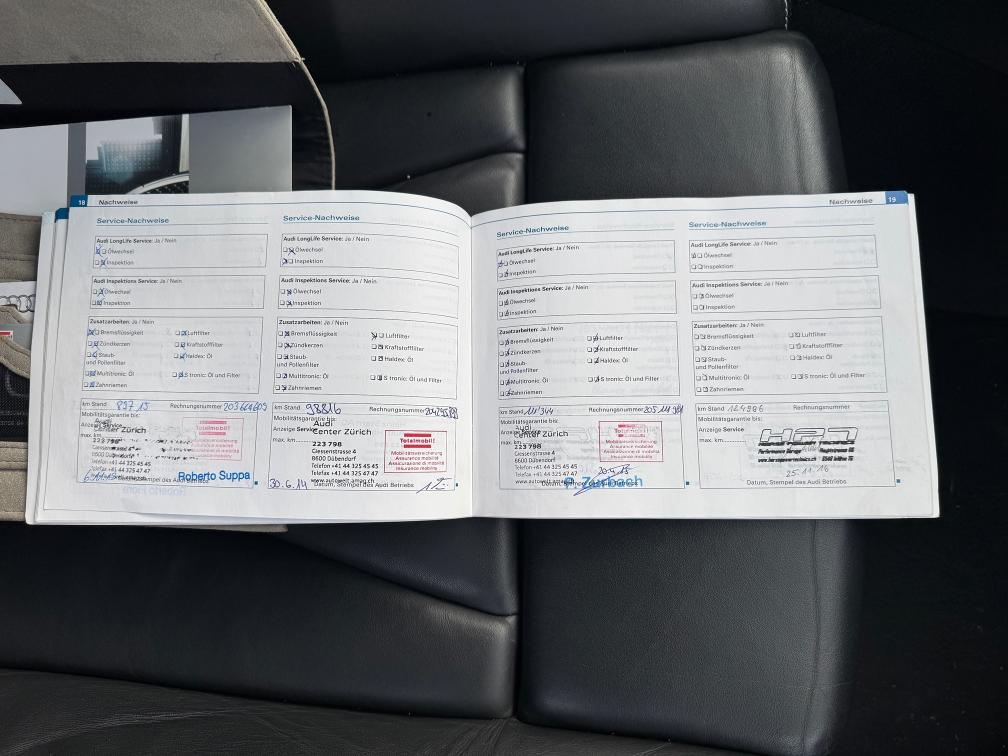 18 Nachweise
Service-Nachweise
Audi LongLife Service: Ja / Nein
Ölwechsel
Inspektion
Audi Inspektions Service: Ja / Nein
Ölwechsel
Inspektion
Zusatzarbeiten: Ja / Nein
Bremsflüssigkeit Luftfilter
Zündkerzen Kraftstofffilter
Staub- Haldex: Öl
und Pollenfilter
Multitronic: Öl S tronic: Öl und Filter
Zahnriemen
km Stand 89715 Rechnungsnummer
Mobilitätsgarantie bis:
Anzeige Service
Center Zürich
max. km
223 798
Giessenstrasse 4
8600 Dübendorf
Telefon +41 44 325 45 45
Telefax +41 44 325 47 47
Roberto Suppa
Service-Nachweise
Audi LongLife Service: Ja / Nein
Ölwechsel
Inspektion
Audi Inspektions Service: Ja / Nein
Ölwechsel
Inspektion
Zusatzarbeiten: Ja / Nein
Bremsflüssigkeit Luftfilter
Zündkerzen Kraftstofffilter
Staub- Haldex: Öl
und Pollenfilter
Multitronic: Öl S tronic: Öl und Filter
Zahnriemen
km Stand 98816 Rechnungsnummer
Mobilitätsgarantie bis:
Audi
Anzeige Service
Center Zürich
max. km
223 798
Giessenstrasse 4
8600 Dübendorf
Telefon +41 44 325 45 45
Telefax +41 44 325 47 47
www.autowelt.amag.ch
Totalmobil!
Mobilitätsversicherung
Assurance mobilité
Assicurazione di mobilità
Insurance mobility
30.6.14 Datum, Stempel des Audi Betriebs
Nachweise 19
Service-Nachweise
Audi LongLife Service: Ja / Nein
Ölwechsel
Inspektion
Audi Inspektions Service: Ja / Nein
Ölwechsel
Inspektion
Zusatzarbeiten: Ja / Nein
Bremsflüssigkeit Luftfilter
Zündkerzen Kraftstofffilter
Staub- Haldex: Öl
und Pollenfilter
Multitronic: Öl S tronic: Öl und Filter
Zahnriemen
km Stand 111344 Rechnungsnummer
Mobilitätsgarantie bis:
Audi
Anzeige Service
Center Zürich
max. km
223 798
Giessenstrasse 4
8600 Dübendorf
Telefon +41 44 325 45 45
Telefax +41 44 325 47 47
www.autowelt.amag.ch
Totalmobil!
Mobilitätsversicherung
Assurance mobilité
Assicurazione di mobilità
Insurance mobility
Datum, Stempel des Audi Betriebs
Service-Nachweise
Audi LongLife Service: Ja / Nein
Ölwechsel
Inspektion
Audi Inspektions Service: Ja / Nein
Ölwechsel
Inspektion
Zusatzarbeiten: Ja / Nein
Bremsflüssigkeit Luftfilter
Zündkerzen Kraftstofffilter
Staub- Haldex: Öl
und Pollenfilter
Multitronic: Öl S tronic: Öl und Filter
Zahnriemen
km Stand 124986 Rechnungsnummer
Mobilitätsgarantie bis:
Anzeige Service
max. km
25.11.16
Datum, Stempel des Audi Betriebs